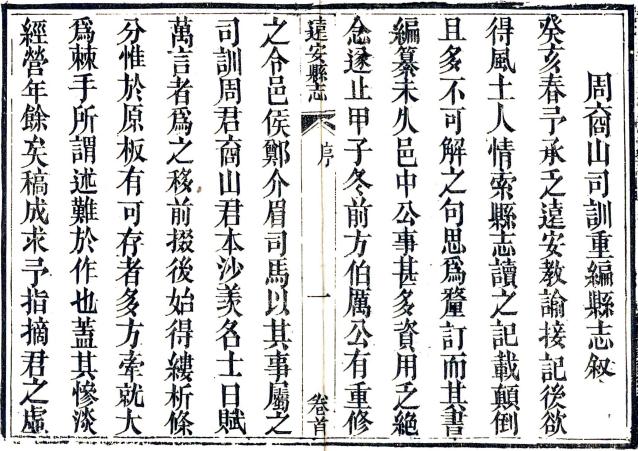 周裔山司訓重編縣志敘
癸亥春予承乏遠安教諭接記後欲
得風土人情索縣志讀之記載顛倒
且多不可解之句思爲釐訂而其書
編纂未久邑中公事甚多資用乏絕
念遂止甲子冬前方伯厲公有重修
遠安縣志
序
一
卷首
之令邑侯鄭介眉司馬以其事屬之
司訓周君裔山君本沙羨名士日賦
萬言者爲之移前掇後始得縷析條
分惟於原板有可存者多方牽就大
爲棘手所謂述難於作也蓋其慘淡
經營年餘矣稿成求予指摘君之虛